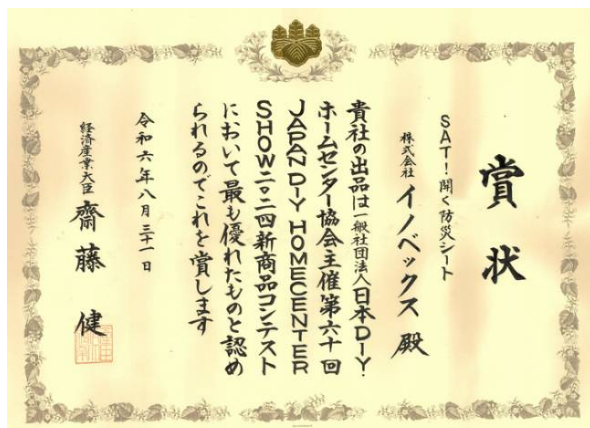 賞状
SAT!開く防災シート
株式会社 イノベックス 殿
貴社の出品は一般社団法人日本DIY・
ホームセンター協会主催第六十回
JAPAN DIY HOMECENTER
SHOW二〇二四新商品コンテスト
において最も優れたものと認め
られるのでこれを賞します
令和六年八月三十一日
経済産業大臣 齋藤 健